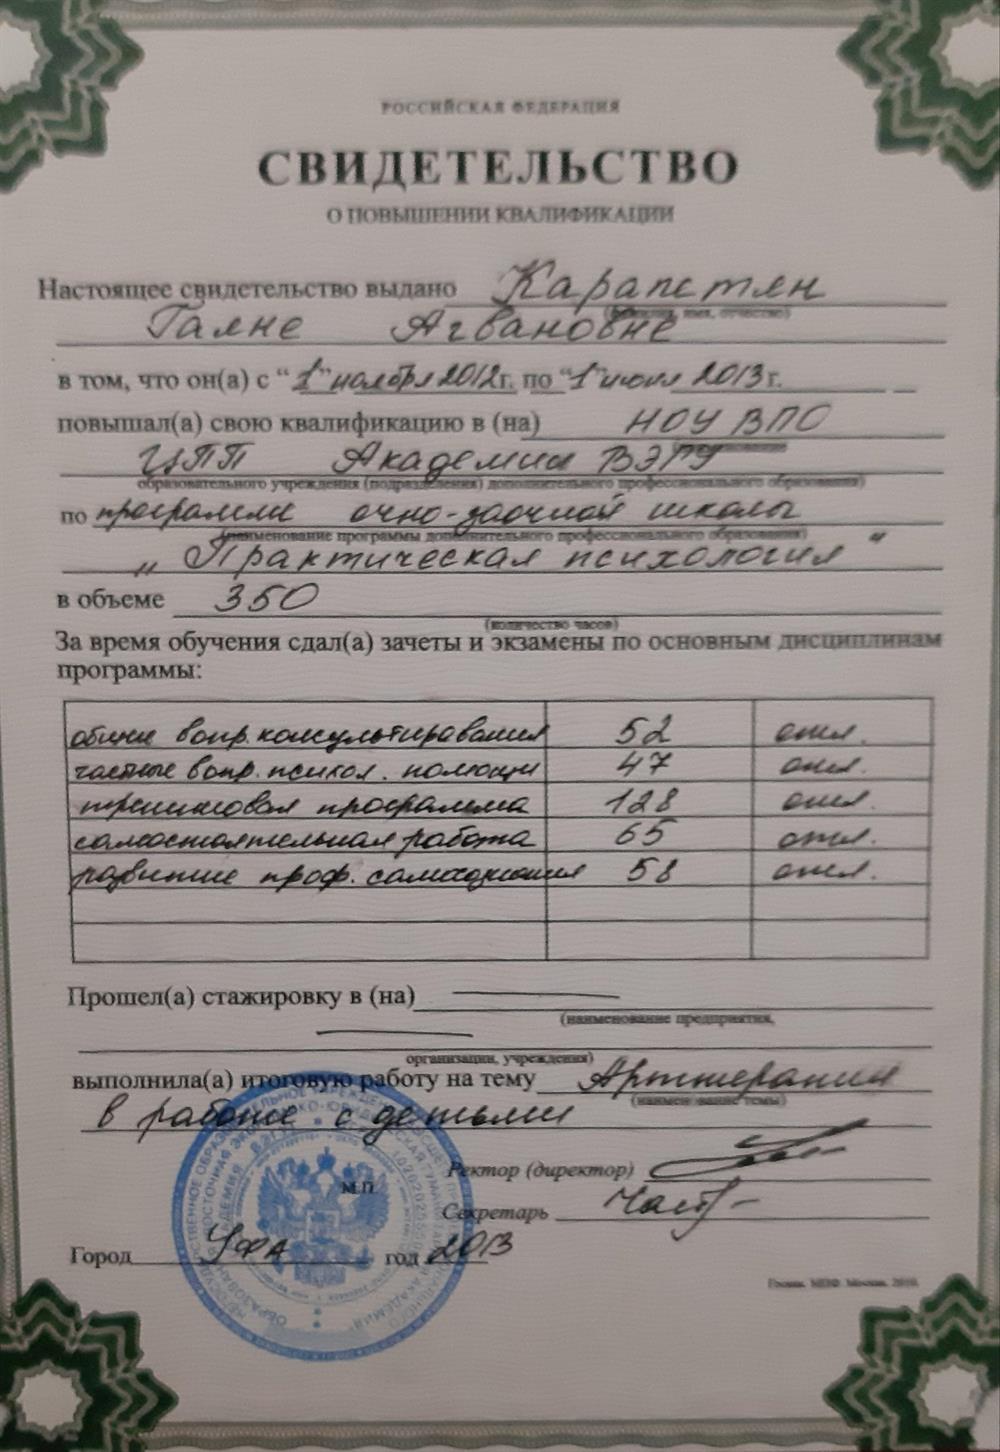 РОССИЙСКАЯ ФЕДЕРАЦИЯ
СВИДЕТЕЛЬСТВО
О ПОВЫШЕНИИ КВАЛИФИКАЦИИ
Настоящее свидетельство выдано Карапетян
(фамилия, имя, отчество)
Гаяне Агвановне
в том, что он(а) с “1” ноября 2012 г. по “1” июня 2013 г.
повышал(а) свою квалификацию в (на) НОУ ВПО
ЦПП Академии ВЭГУ
образовательного учреждения (подразделения) дополнительного профессионального образования)
по программе очно-заочной школы
(наименование программы дополнительного профессионального образования)
„Практическая психология“
в объеме 350
(количество часов)
За время обучения сдал(а) зачеты и экзамены по основным дисциплинам
программы:
общие вопр. консультирования 52 отл.
частные вопр. психол. помощи 47 отл.
тренинговая программа 128 отл.
самостоятельная работа 65 отл.
развитие проф. самосознания 58 отл.
Прошел(а) стажировку в (на)
(наименование предприятия,
организации, учреждения)
выполнила(а) итоговую работу на тему Арттерапия
(наименование темы)
в работе с детьми
Ректор (директор)
М.П.
Секретарь
Город Уфа год 2013
Гознак. МПФ. Москва. 2010.